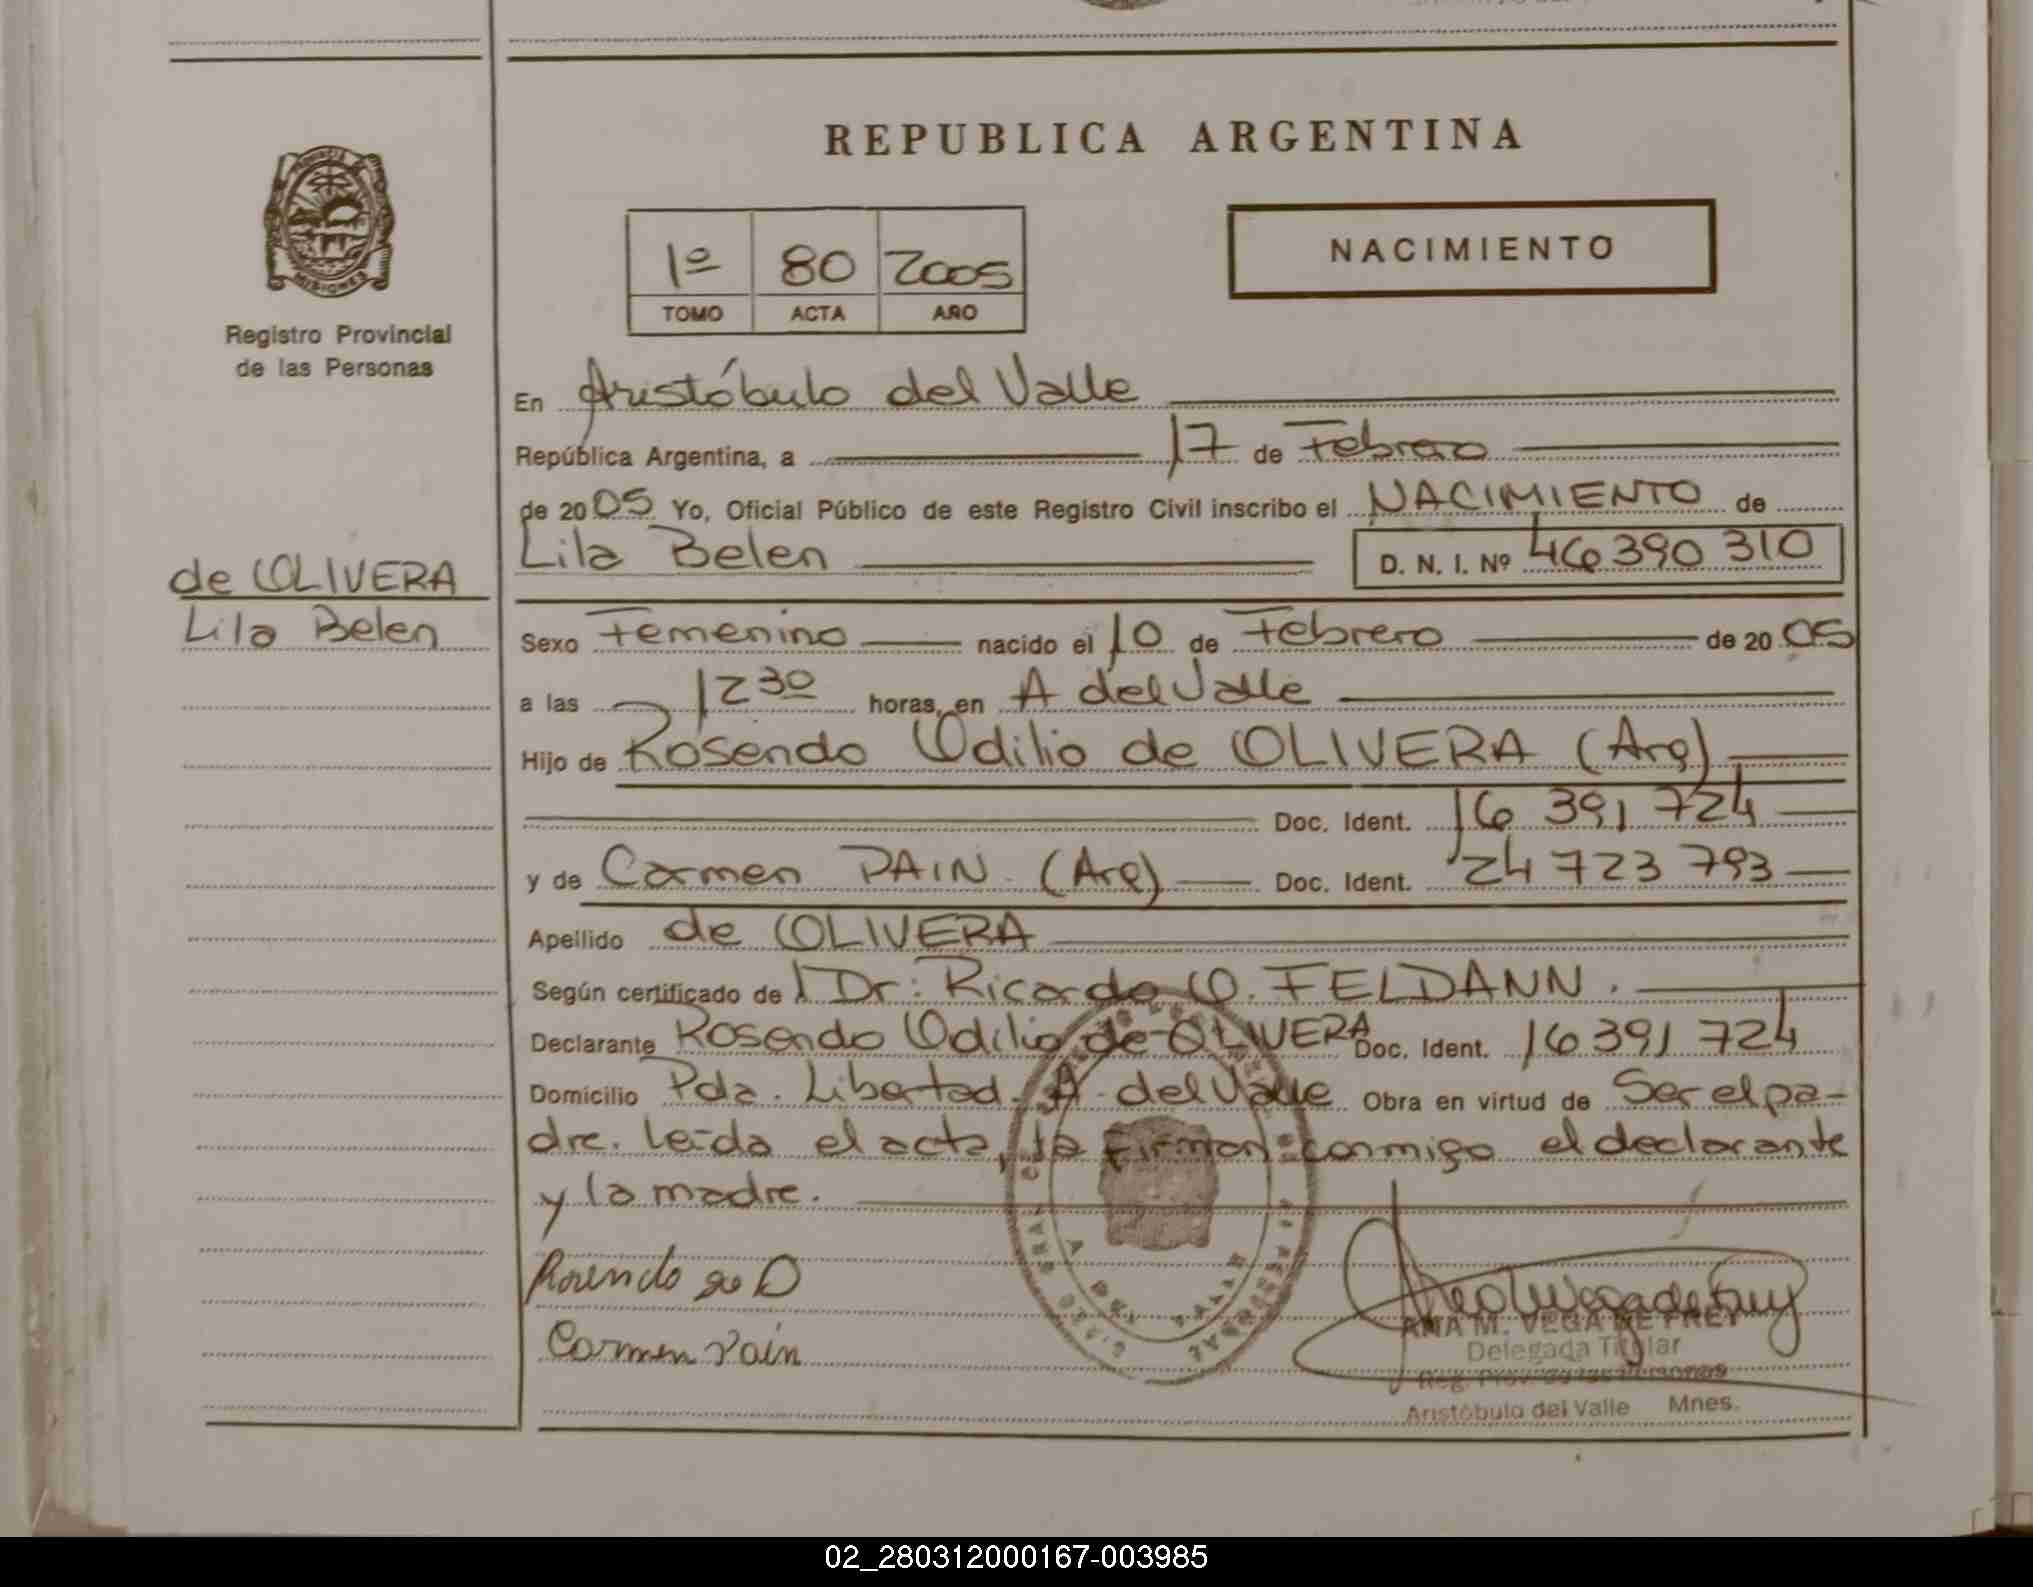 REPUBLICA ARGENTINA
PROVINCIA DE
MISIONES
Registro Provincial
de las Personas
1º 80 2005
TOMO ACTA AÑO
NACIMIENTO
En Aristóbulo del Valle
República Argentina, a 17 de Febrero
de 2005 Yo, Oficial Público de este Registro Civil inscribo el NACIMIENTO de
Lila Belen D. N. I. Nº 46 390 310
de OLIVERA
Lila Belen
Sexo Femenino nacido el 10 de Febrero de 2005
a las 12 30 horas, en A del Valle
Hijo de Rosendo Odilio de OLIVERA (Arg)
Doc. Ident. 16 391 724
y de Carmen PAIN. (Arg) Doc. Ident. 24 723 793
Apellido de OLIVERA
Según certificado de Dr. Ricardo O. FELDANN.
Declarante Rosendo Odilio de OLIVERA Doc. Ident. 16 391 724
Domicilio Pda. Libertad. A. del Valle Obra en virtud de Ser el pa-
dre. Leida el acta, la firman conmigo el declarante
y la madre.
Rosendo de O
Carmen Pain
ANA M. VEGA DE FREY
Delegada Titular
Reg. Prov. de las Personas
Aristóbulo del Valle Mnes.
02_280312000167-003985